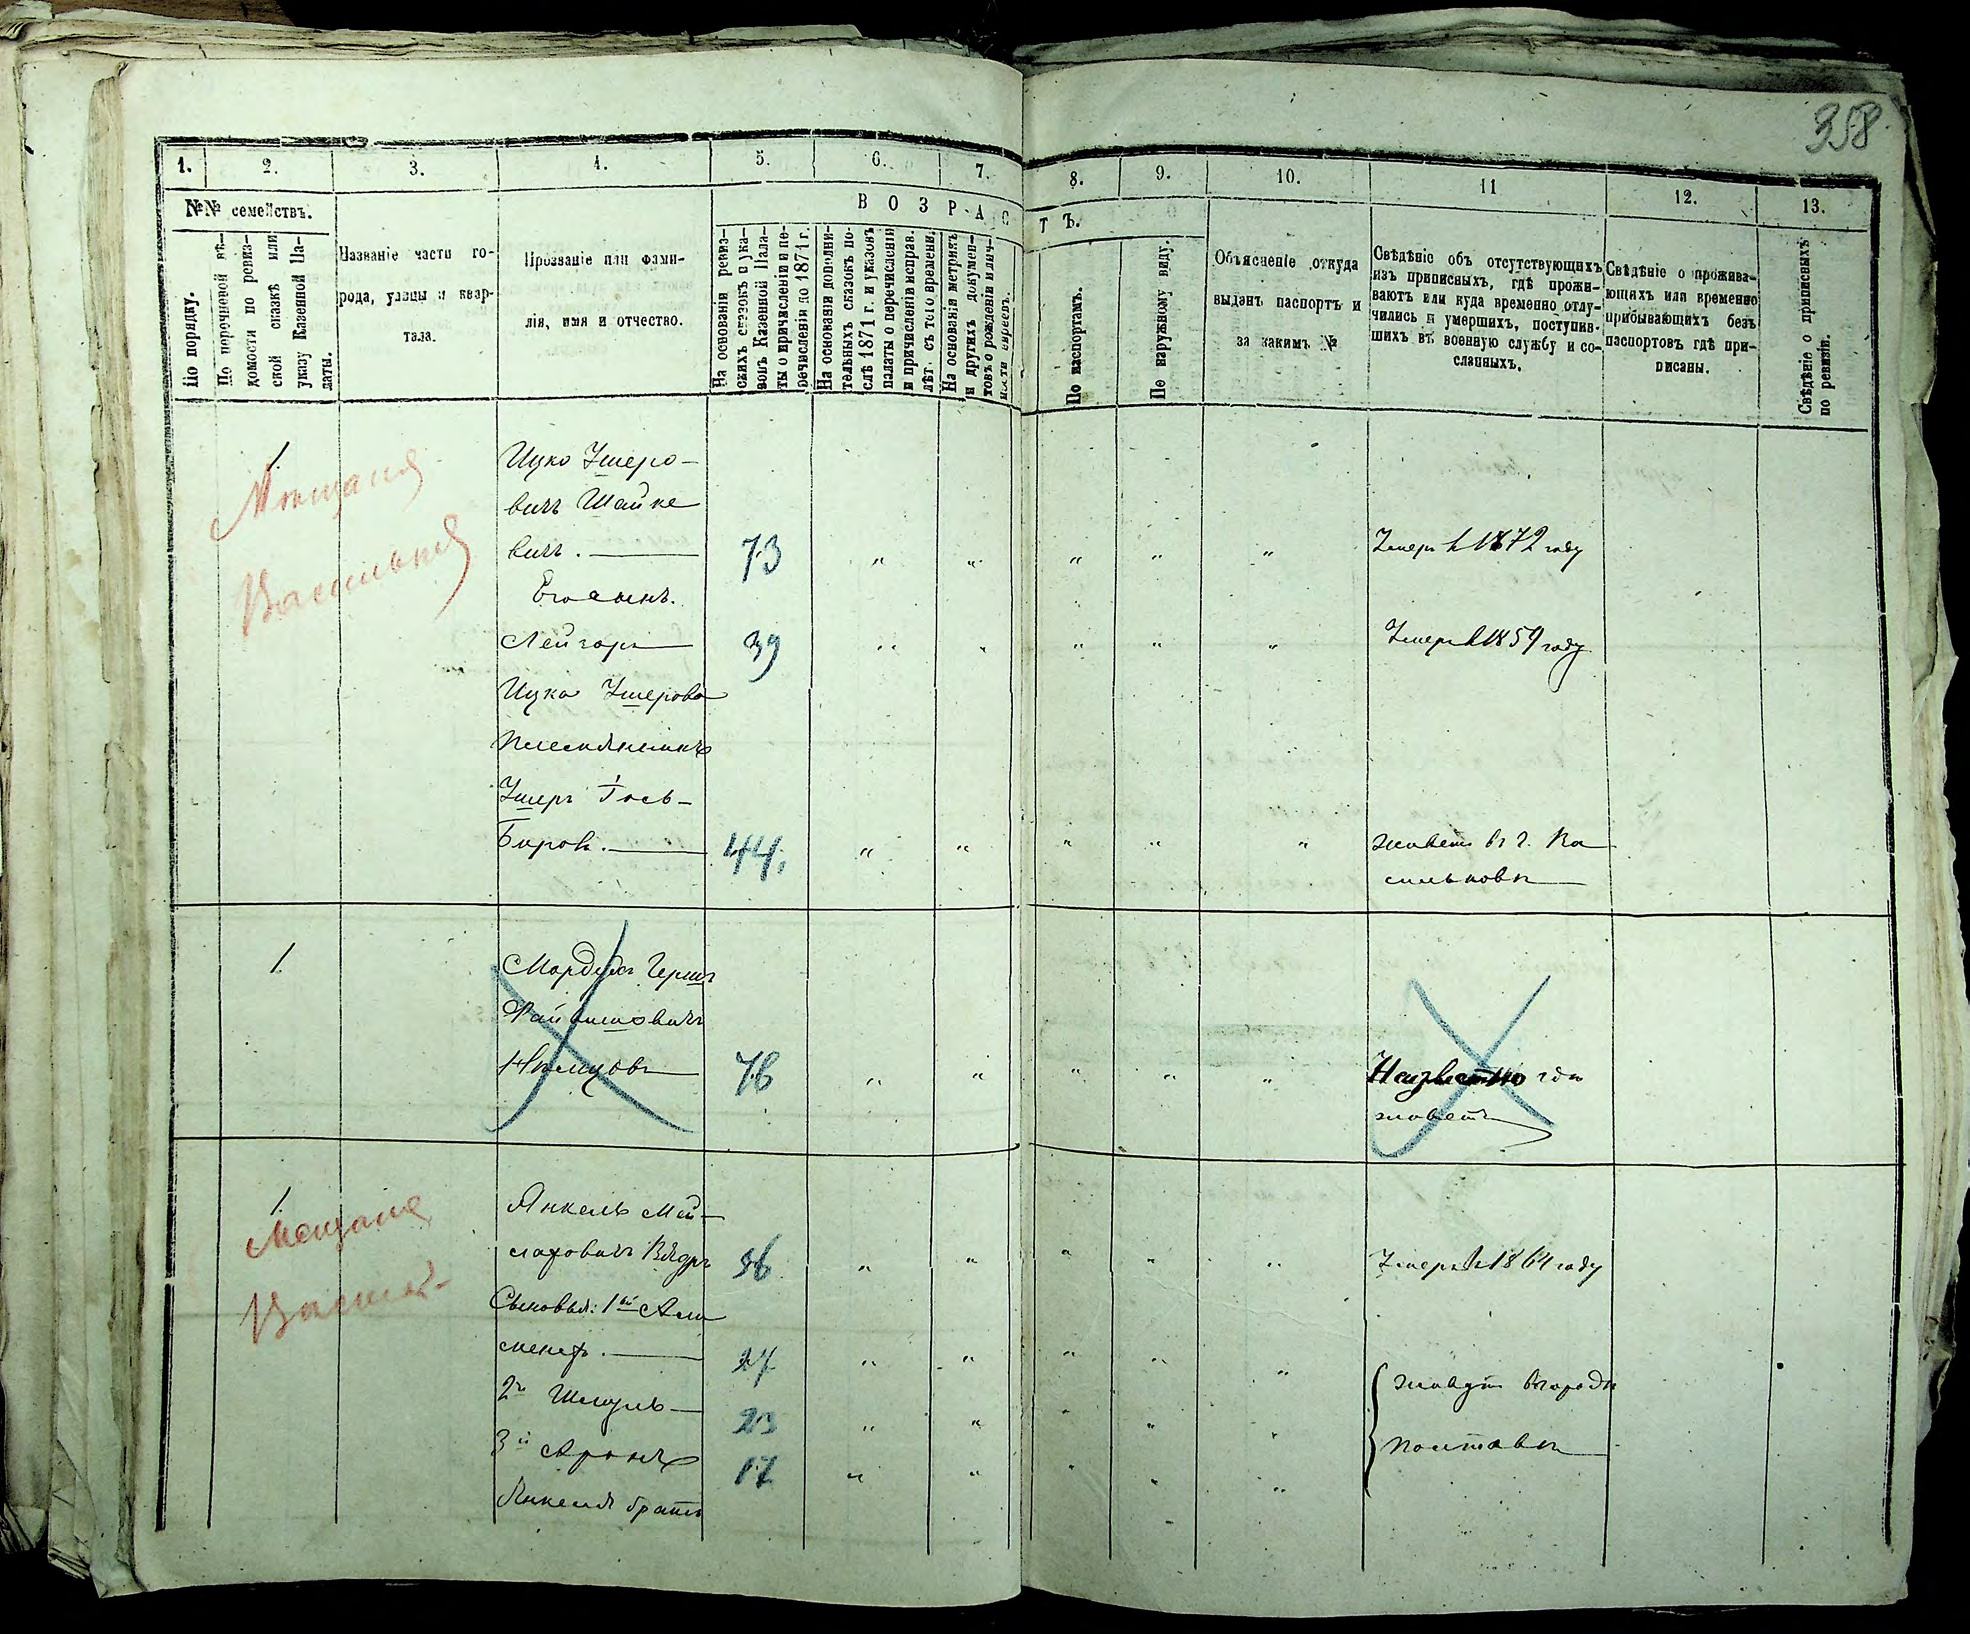 358
1. 2. 3. 4. 5. 6. 7. 8. 9. 10. 11 12. 13.
№№ семействъ.
По порядку.
По перечневой вѣ-
домости по ревиз-
ской сказкѣ или
указу Казенной Па-
латы.
Названіе части го-
рода, улицы и квар-
тала.
Прозваніе или фами-
лія, имя и отчество.
ВОЗРАСТЪ.
На основаніи ревиз-
скихъ сказокъ и ука-
зовъ Казенной Пала-
ты о причисленіи и пе-
речисленіи по 1871 г.
На основаніи дополни-
тельныхъ сказокъ по-
слѣ 1871 г. и указовъ
палаты о перечисленіи
и причисленіи исправ.
лѣт. съ того времени.
На основаніи метрикъ
и другихъ докумен-
товъ о рожденіи и лич-
ности евреевъ.
По паспортамъ.
По наружному виду.
Объясненіе откуда
выданъ паспортъ и
за какимъ №
Свѣдѣніе объ отсутствующихъ
изъ приписныхъ, гдѣ прожи-
ваютъ или куда временно отлу-
чились и умершихъ, поступив-
шихъ въ военную службу и со-
сланныхъ.
Свѣдѣніе о прожива-
ющихъ или временно
прибывающихъ безъ
паспортовъ гдѣ при-
писаны.
Свѣдѣніе о приписныхъ
по ревизіи.
1
Мѣщане
Василько
Ицко Ушеро-
вичъ Шайке
вичъ. 73 Умеръ въ 1872 году
Его сынъ.
Лейзоръ 39 Умеръ въ 1859 году
Ицка Ушерова
племянникъ
Ушеръ Іось-
Беровъ. 44. живетъ въ г. Ва
сильковѣ
1
Мордухъ Герш
Файвишовичъ
Нѣмцовъ 76 Неизвѣстно гдѣ
живетъ
1
Мещане
Васильк-
Янкель Мей-
лаховичъ Вядръ 56 Умеръ въ 1864 году
Сыновья: 1ый Али
мелехъ. 27
2й Шмуль 23 живутъ в городѣ
3й Аронъ 17 Полтавѣ
Янкеля братъ